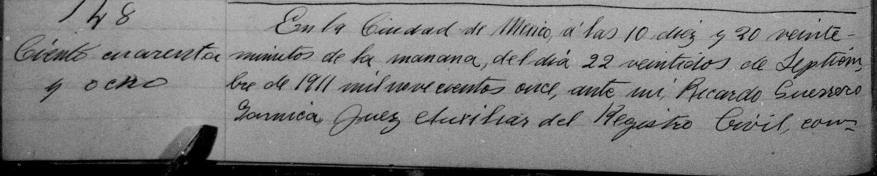 148
Ciento cuarenta
y ocho
En la Ciudad de Mexico, á las 10 diez y 20 veinte
minutos de la mañana, del día 22 veintidos de Septiem,
bre de 1911 mil novecientos once, ante mí, Ricardo Guerrero
Garnica, Juez Auxiliar del Registro Civil, com=